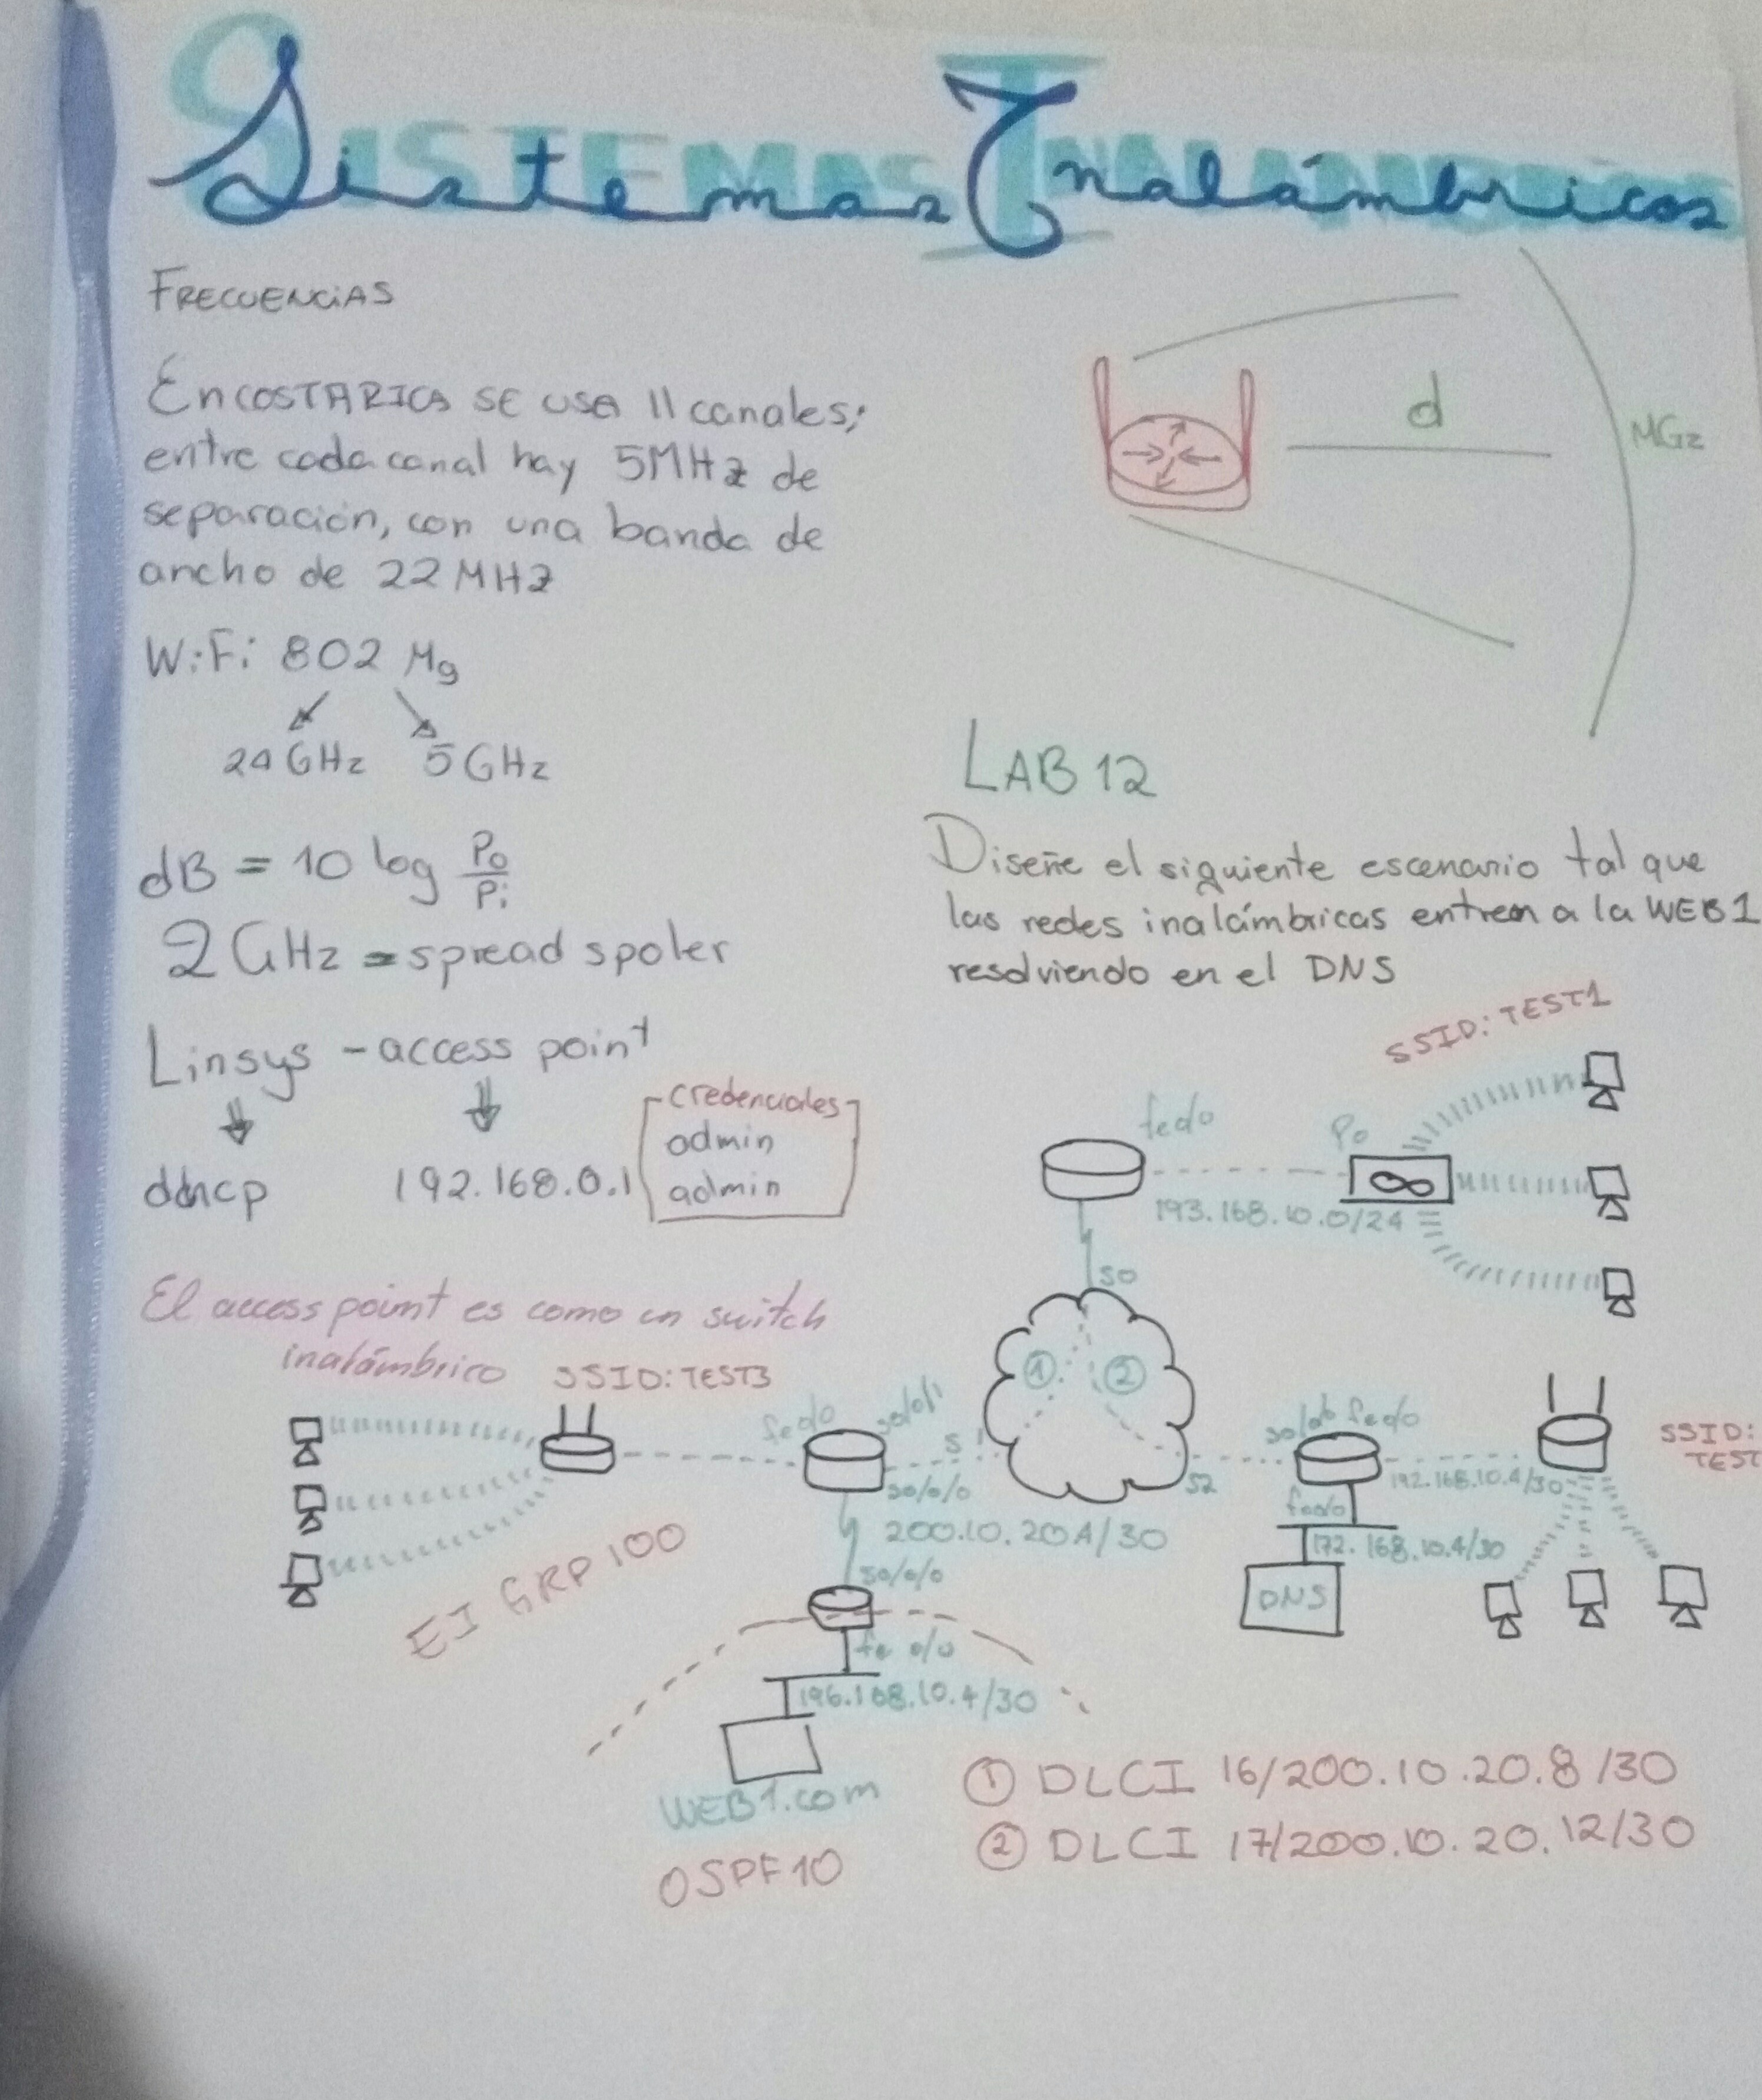 Sistemas Inalámbricos
SISTEMAS INALAMBRICOS
FRECUENCIAS
En COSTA RICA SE USA 11 canales;
entre cada canal hay 5MHz de
separación, con una banda de
ancho de 22 MHz
WiFi 802 Mg
24 GHz 5 GHz
dB = 10 log Po/Pi
2 GHz = spread spoler
Linsys - access point
dhcp 192.168.0.1
credenciales
admin
admin
El access point es como un switch
inalámbrico
d
MGz
LAB 12
Diseñe el siguiente escenario tal que
las redes inalámbricas entren a la WEB1
resolviendo en el DNS
SSID: TEST1
fe0/0
P0
193.168.10.0/24
S0
1
2
SSID: TEST3
fe0/0
S0/0/1
S1
S0/0/0
200.10.20.4/30
S2
fe0/0
192.168.10.4/30
SSID:
TEST
172.168.10.4/30
DNS
EIGRP 100
S0/0/0
fe 0/0
196.168.10.4/30
WEB1.com
OSPF10
① DLCI 16/200.10.20.8/30
② DLCI 17/200.10.20.12/30